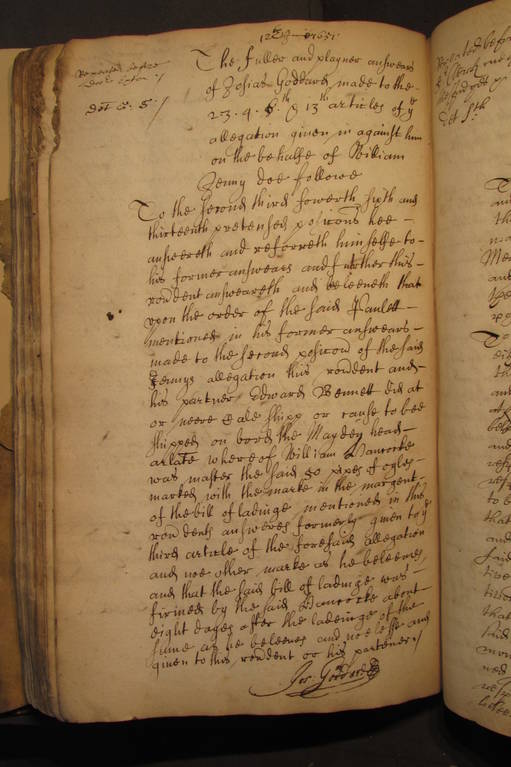 12th 1651
Repeated before
doctor
dt. S. S. /
The fuller and playner answears
of Josias Goddard made to the
2. 3. 4. 6.th & 13th articles of ye
allegation given in against him
on the behalfe of William
Jenny doe followe
To the second third fowerth sixth and
thirteenth pretensed positions hee
answereth and referreth himselfe to
his former answears and further this
rondent answeareth and beleeveth that
upon the order of the said Paulett
mentioned in his former answears
made to the second position of the said
Jennys allegation this rondent and
his partner Edward Bennett did at
or neere Cale shipp or cause to bee
shipped on bord the Mayden head
arlate whereof William Hancocke
was master the said 50 pipes of oyles
marked with the marke in the margent
of the bill of ladinge mentioned in this
rondents answeres formerly given to ye
third article of the foresaid allegation
and noe other marke as he beleeves
and that the said bill of ladinge was
firmed by the said Hancocke about
eight dayes after the ladeinge of the
same as he beleeves and noe lesse and
given to this rondent or his partener /
Jos: Goddard